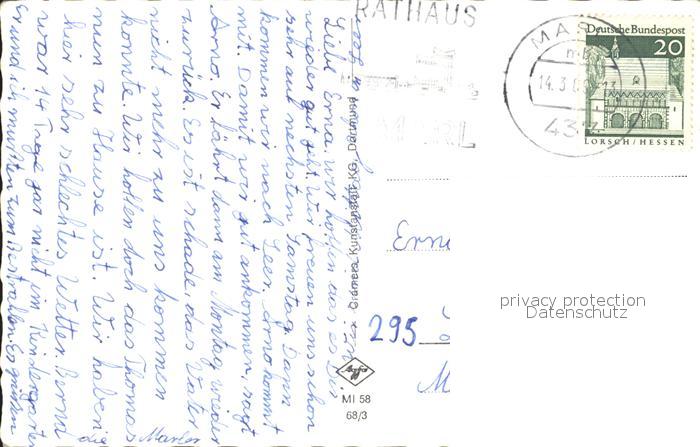 RATHAUS
MARL
MARL
14.3.6
437
Deutsche Bundespost
20
LORSCH/HESSEN
Liebe Erna, wir hoffen das es Dir
wieder gut geht. Wir freuen uns schon
sehr auf nächsten Samstag. Dann
kommen wir nach Leer. Arno kommt
mit Damit wir gut ankommen, sagt
Arno. Er fährt dann am Montag wieder
zurück. Es ist schade, das Vater
nicht mehr zu uns kommen
konnte. Wir hoffen doch das Thomas
nun zu Hause ist. Wir haben
hier sehr schlechtes Wetter. Bernd
war 14 Tage gar nicht im Kindergarten
Grund
die Marler
Cramers Kunstanstalt KG, Dortmund
Agfa
MI 58
68/3
Erna
295
M
privacy protection
Datenschutz